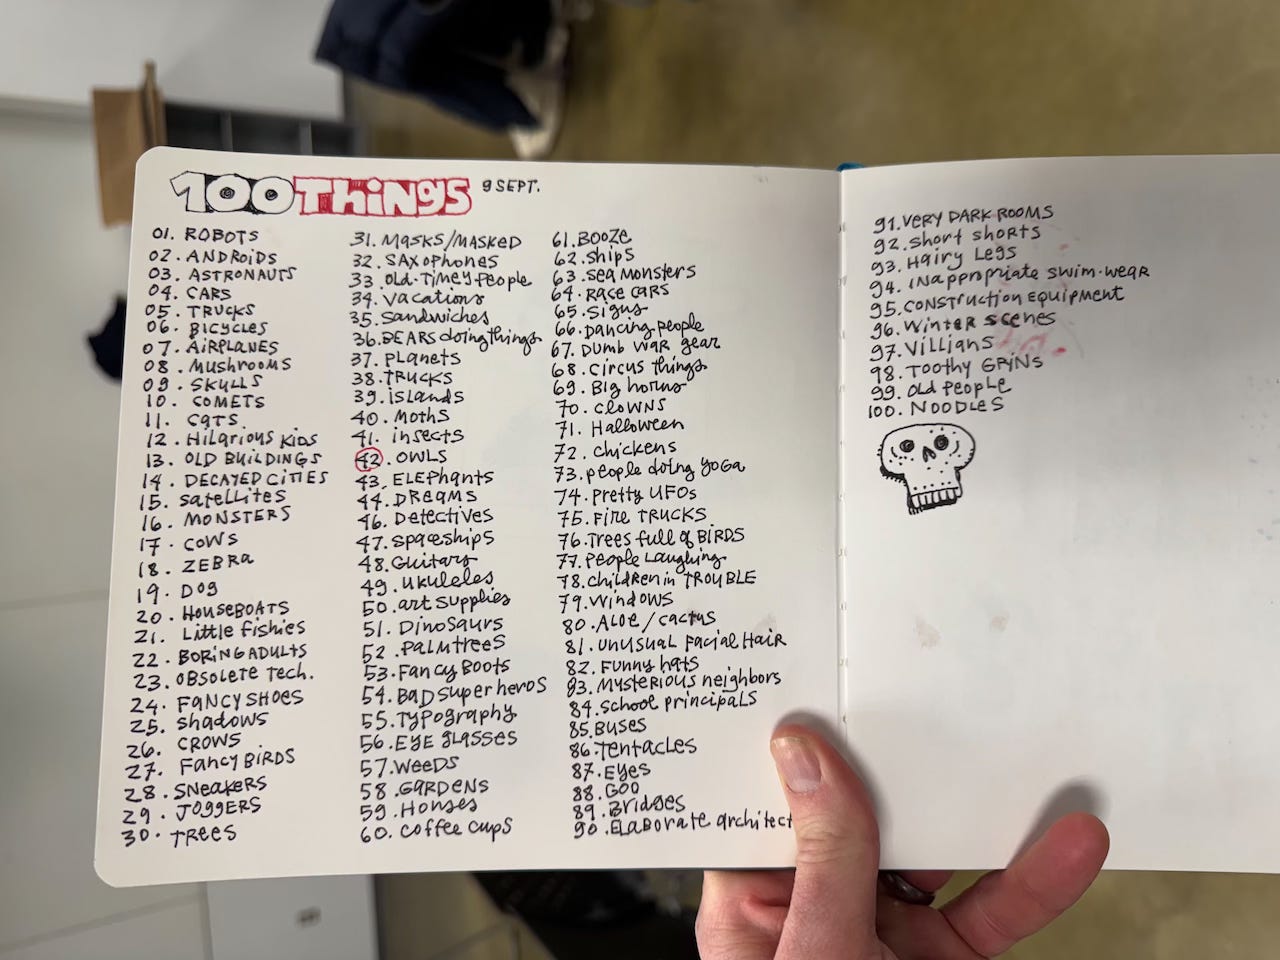 100 THiNGS 9 SEPT.
01. ROBOTS
02. ANDROIDS
03. ASTRONAUTS
04. CARS
05. TRUCKS
06. BICYCLES
07. AIRPLANES
08. MUSHROOMS
09. SKULLS
10. COMETS
11. CATS
12. HILARIOUS KIDS
13. OLD BUILDINGS
14. DECAYED CITIES
15. SATELLITES
16. MONSTERS
17. COWS
18. ZEBRA
19. DOG
20. HOUSEBOATS
21. LITTLE FISHIES
22. BORING ADULTS
23. OBSOLETE TECH.
24. FANCY SHOES
25. SHADOWS
26. CROWS
27. FANCY BIRDS
28. SNEAKERS
29. JOGGERS
30. TREES
31. MASKS/MASKED
32. SAXOPHONES
33. OLD-TIMEY PEOPLE
34. VACATIONS
35. SANDWICHES
36. BEARS doing things
37. PLANETS
38. TRUCKS
39. ISLANDS
40. MOTHS
41. INSECTS
42. OWLS
43. ELEPHANTS
44. DREAMS
46. DETECTIVES
47. SPACESHIPS
48. Guitars
49. UKULELES
50. art supplies
51. DINOSAURS
52. PALMTREES
53. FANCY BOOTS
54. BAD SUPER HEROS
55. TYPOGRAPHY
56. EYE GLASSES
57. WEEDS
58. GARDENS
59. HORSES
60. COFFEE CUPS
61. BOOZE
62. SHIPS
63. SEA MONSTERS
64. RACE CARS
65. SIGNS
66. DANCING PEOPLE
67. DUMB WAR GEAR
68. CIRCUS THINGS
69. BIG HORNS
70. CLOWNS
71. Halloween
72. CHICKENS
73. people doing YOGA
74. PRETTY UFOs
75. FIRE TRUCKS
76. TREES full of BIRDS
77. People Laughing
78. Children in TROUBLE
79. WINDOWS
80. ALOE / CACTUS
81. UNUSUAL FACIAL HAIR
82. FUNNY HATS
83. MYSTERIOUS NEIGHBORS
84. SCHOOL PRINCIPALS
85. BUSES
86. TENTACLES
87. EYES
88. GOO
89. Bridges
90. ELABORATE architect
91. VERY DARK ROOMS
92. SHORT SHORTS
93. HAIRY LEGS
94. INAPPROPRIATE SWIM-WEAR
95. CONSTRUCTION EQUIPMENT
96. WINTER SCENES
97. VILLIANS
98. TOOTHY GRINS
99. OLD PEOPLE
100. NOODLES